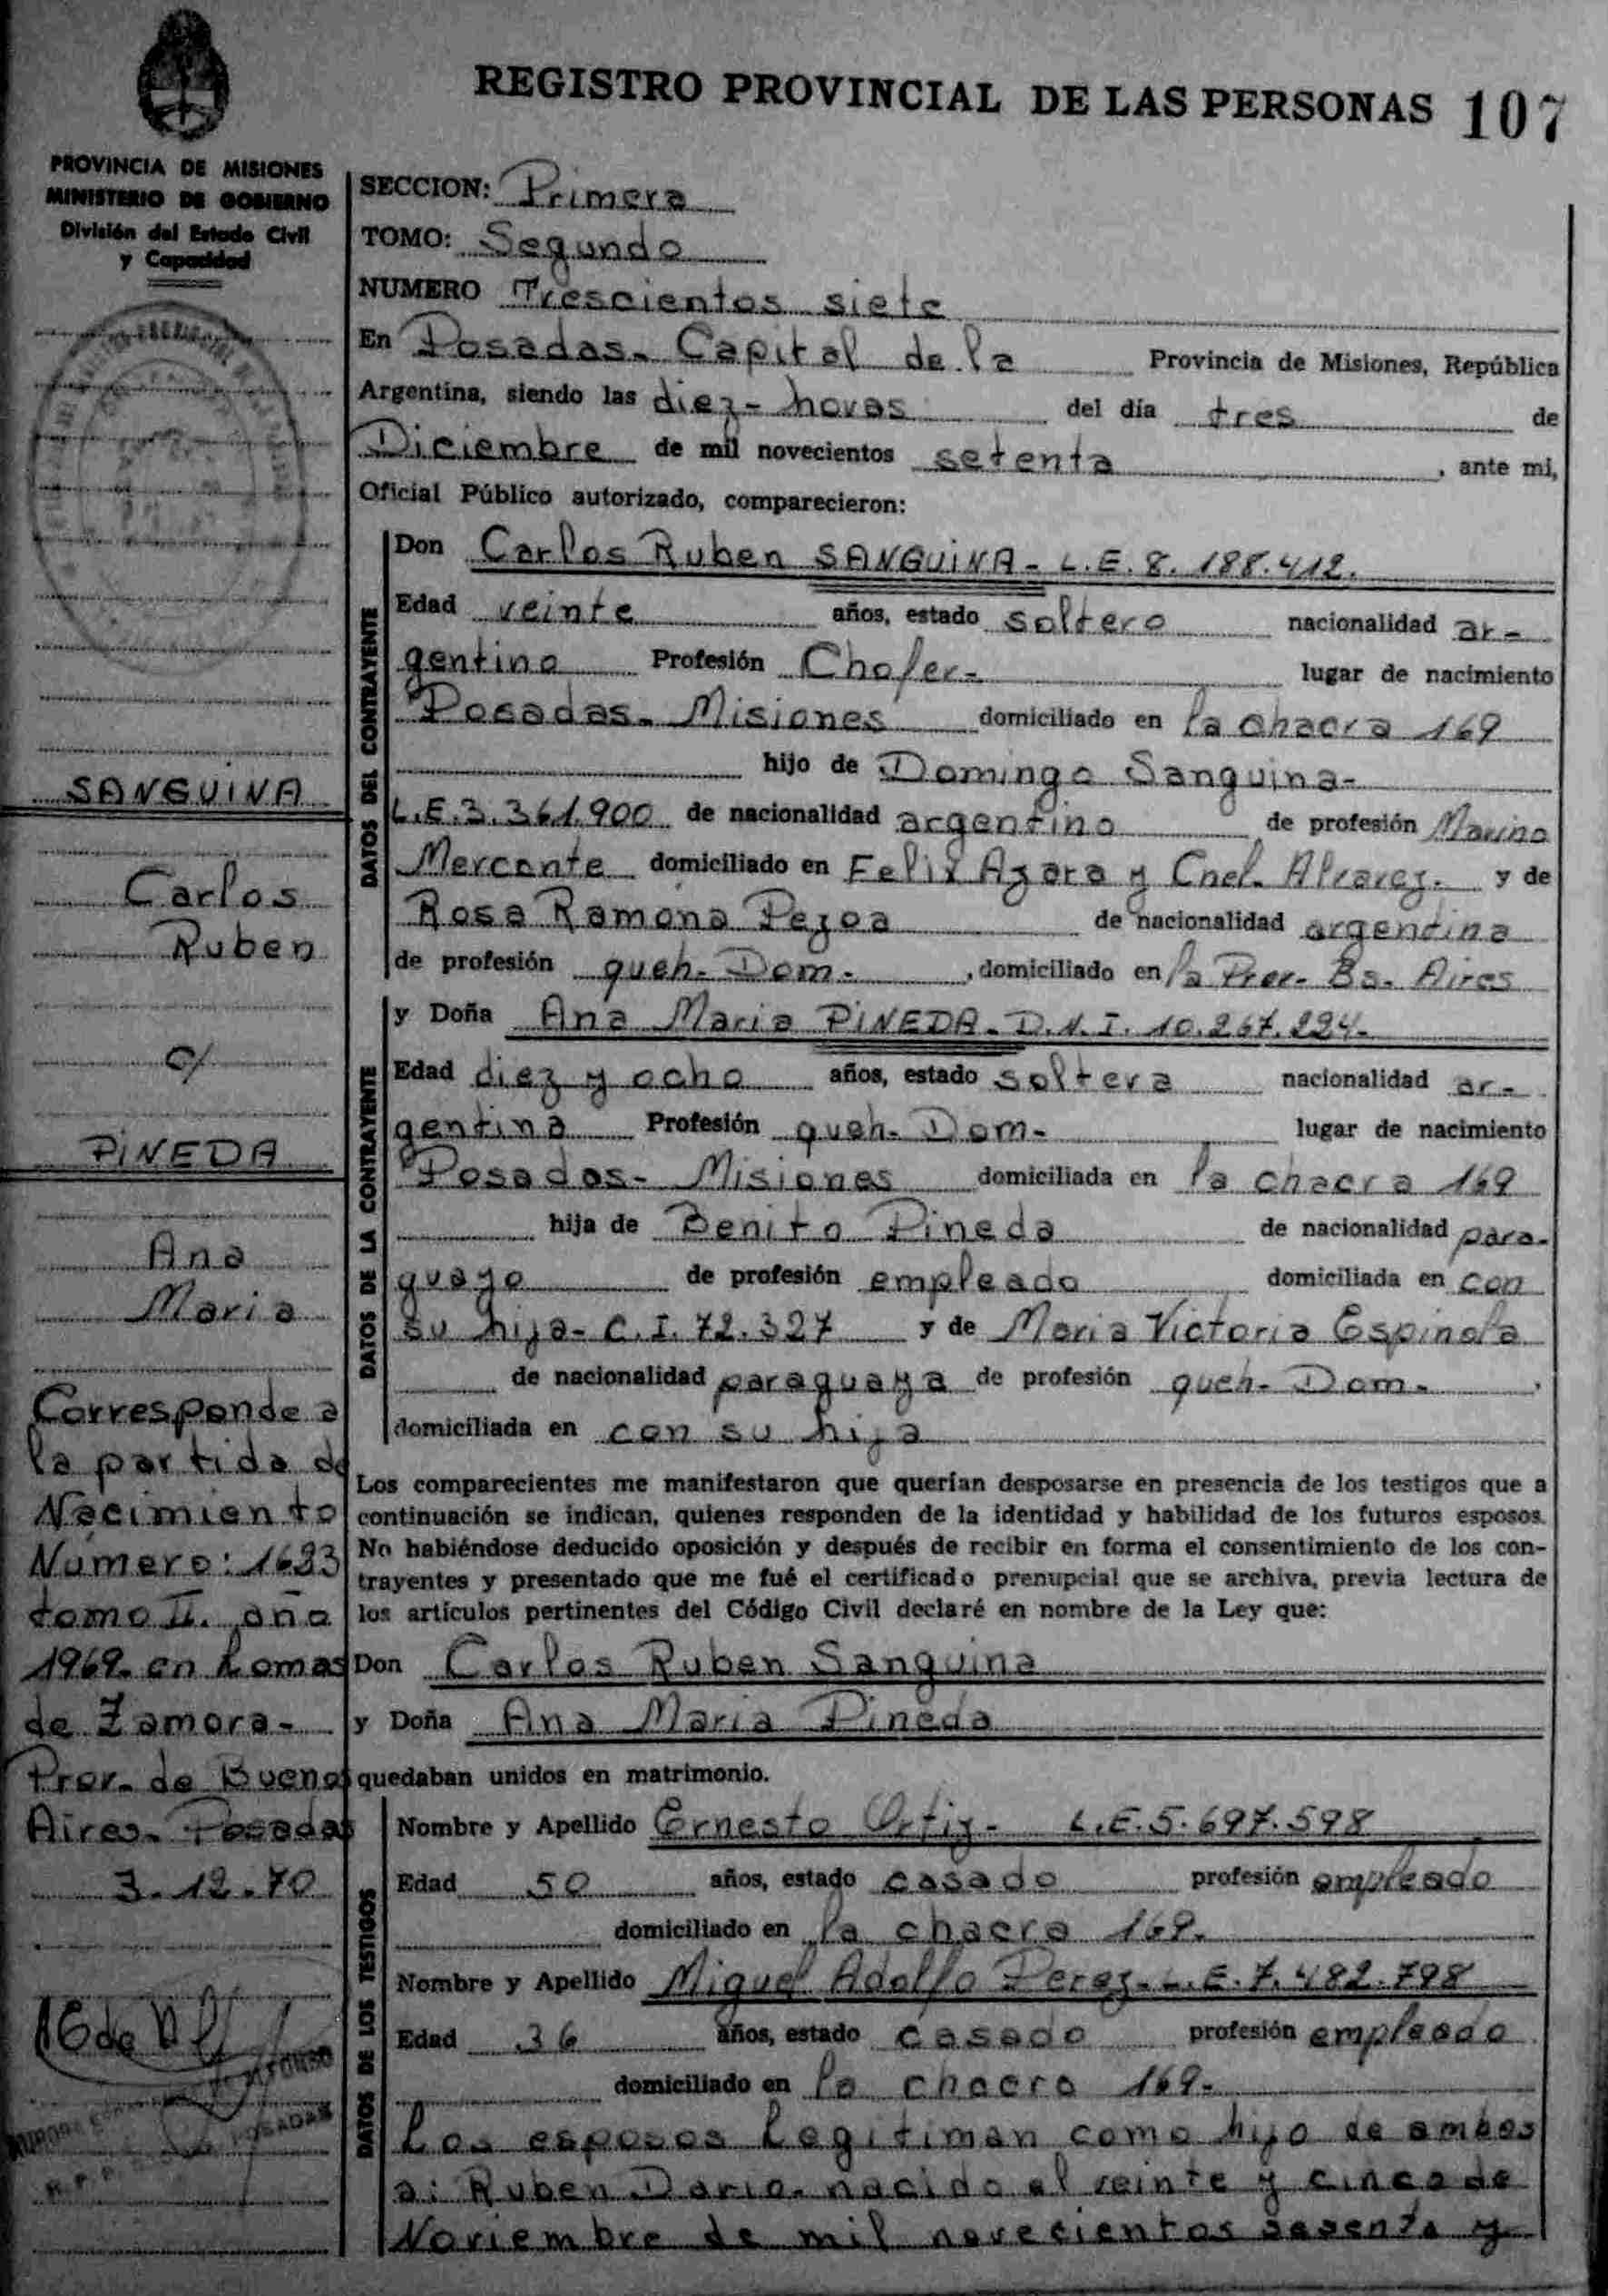 REGISTRO PROVINCIAL DE LAS PERSONAS 107
PROVINCIA DE MISIONES
MINISTERIO DE GOBIERNO
División del Estado Civil
y Capacidad
SECCION: Primera
TOMO: Segundo
NUMERO Trescientos siete
En Posadas- Capital de la Provincia de Misiones, República
Argentina, siendo las diez- horas del día tres de
Diciembre de mil novecientos setenta, ante mi,
Oficial Público autorizado, comparecieron:
DATOS DEL CONTRAYENTE
Don Carlos Ruben SANGUINA- L.E. 8.188.412.
Edad veinte años, estado soltero nacionalidad ar-
gentino Profesión Chofer- lugar de nacimiento
Posadas- Misiones domiciliado en la chacra 169
hijo de Domingo Sanguina-
L.E. 3.361.900 de nacionalidad argentino de profesión Marino
Mercante domiciliado en Felix Azara y Cnel. Alvarez. y de
Rosa Ramona Pezoa de nacionalidad argentina
de profesión queh- Dom-, domiciliado en la Prov- Bs. Aires
DATOS DE LA CONTRAYENTE
y Doña Ana Maria PINEDA- D.N.I. 10.267.224-
Edad diez y ocho años, estado soltera nacionalidad ar-
gentina Profesión queh- Dom- lugar de nacimiento
Posadas- Misiones domiciliada en la chacra 169
hija de Benito Pineda de nacionalidad para-
guayo de profesión empleado domiciliada en con
su hija- C.I. 72.327 y de Maria Victoria Espinola
de nacionalidad paraguaya de profesión queh- Dom-,
domiciliada en con su hija
Los comparecientes me manifestaron que querían desposarse en presencia de los testigos que a
continuación se indican, quienes responden de la identidad y habilidad de los futuros esposos.
No habiéndose deducido oposición y después de recibir en forma el consentimiento de los con-
trayentes y presentado que me fué el certificado prenupcial que se archiva, previa lectura de
los artículos pertinentes del Código Civil declaré en nombre de la Ley que:
Don Carlos Ruben Sanguina
y Doña Ana Maria Pineda
quedaban unidos en matrimonio.
DATOS DE LOS TESTIGOS
Nombre y Apellido Ernesto Ortiz- L.E. 5.697.598
Edad 50 años, estado casado profesión empleado
domiciliado en la chacra 169.
Nombre y Apellido Miguel Adolfo Perez- L.E. 7.482.798
Edad 36 años, estado casado profesión empleado
domiciliado en la chacra 169-
Los esposos Legitiman como hijo de ambos
a: Ruben Dario- nacido el veinte y cinco de
Noviembre de mil novecientos sesenta y
SANGUINA
Carlos
Ruben
c/
PINEDA
Ana
Maria
Corresponde a
la partida de
Nacimiento
Número: 1633
tomo II. año
1969- en Lomas
de Zamora-
Prov- de Buenos
Aires- Posadas
3-12-70
POSADAS